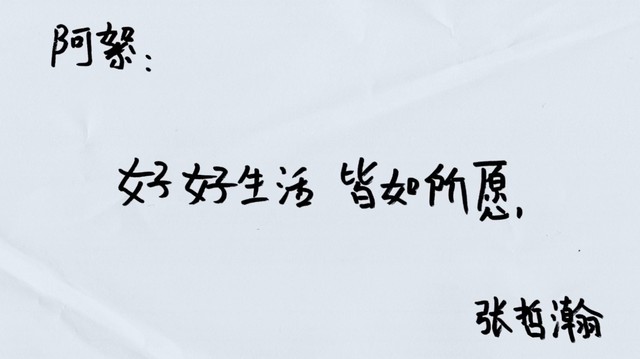 阿絮：
好好生活 皆如所愿，
张哲瀚